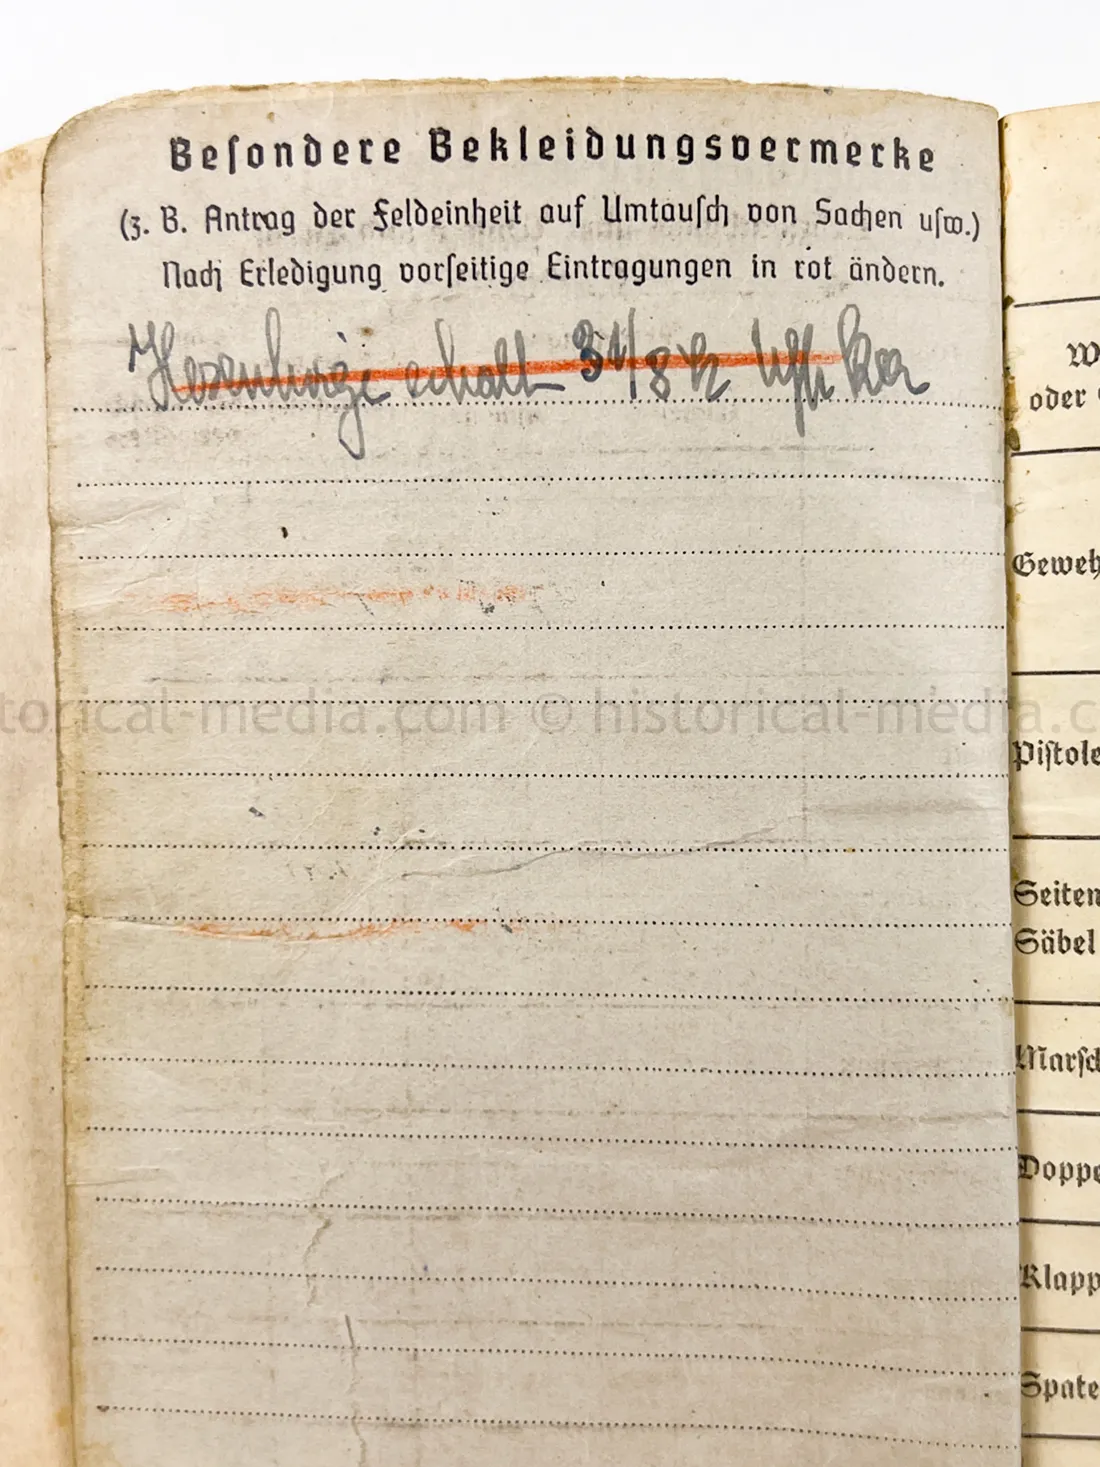 Besondere Bekleidungsvermerke
(z. B. Antrag der Feldeinheit auf Umtausch von Sachen usw.)
Nach Erledigung vorseitige Eintragungen in rot ändern.
erhalt 31/8
torical-media.com © historical-media.c
W
oder
Geweh
Pistole
Seiten
Säbel
Marsch
Doppe
Klapp
Spate